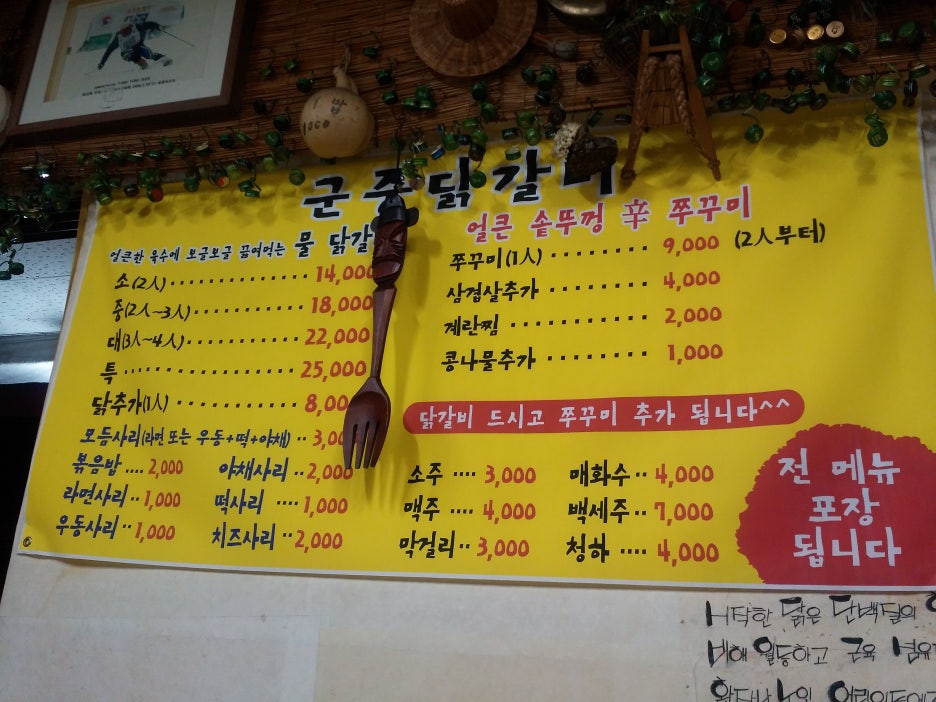 밥
1000
군주닭갈비
얼큰한 육수에 보글보글 끓여먹는 물 닭갈
소(2人) 14,000
중(2人~3人) 18,000
대(3人~4人) 22,000
특 25,000
닭추가(1人) 8,00
모듬사리(라면 또는 우동+떡+야채) 3,00
볶음밥 .... 2,000 야채사리 .. 2,000
라면사리 .. 1,000 떡사리 .... 1,000
우동사리 .. 1,000 치즈사리 .. 2,000
얼큰 솥뚜껑 辛 쭈꾸미
쭈꾸미(1人) 9,000 (2人부터)
삼겹살추가 4,000
계란찜 2,000
콩나물추가 1,000
닭갈비 드시고 쭈꾸미 추가 됩니다^^
소주 .... 3,000 매화수 .. 4,000
맥주 .... 4,000 백세주 .. 7,000
막걸리 .. 3,000 청하 .... 4,000
전 메뉴
포장
됩니다
닭은 단백질의
비해 월등하고 근육